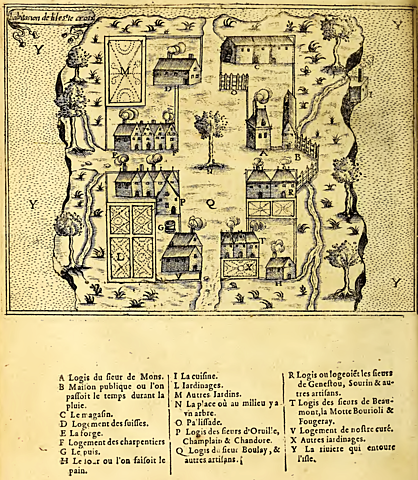 Habitasion de lisle ste croix
Y
Y
M
D
C
A
B
F
Q
P
R
L
T
X
Y
Y
A Logis du sieur de Mons.
B Maison publique ou l'on
passoit le temps durant la
pluie.
C Le magasin.
D Logement des suisses.
E La forge.
F Logement des charpentiers
G Le puis.
H Le four ou l'on faisoit le
pain.
I La cuisine.
L Iardinages.
M Autres Iardins.
N La place où au milieu y a
vn arbre.
O Palissade.
P Logis des sieurs d'Oruille,
Champlain & Chandore.
Q Logis du sieur Boulay, &
autres artisans.
R Logis ou logeoiēt les sieurs
de Genestou, Sourin & au-
tres artisans.
T Logis des sieurs de Beau-
mont, la Motte Bourioli &
Fougeray.
V Logement de nostre curé.
X Autres iardinages.
Y La riuiere qui entoure
l'isle.